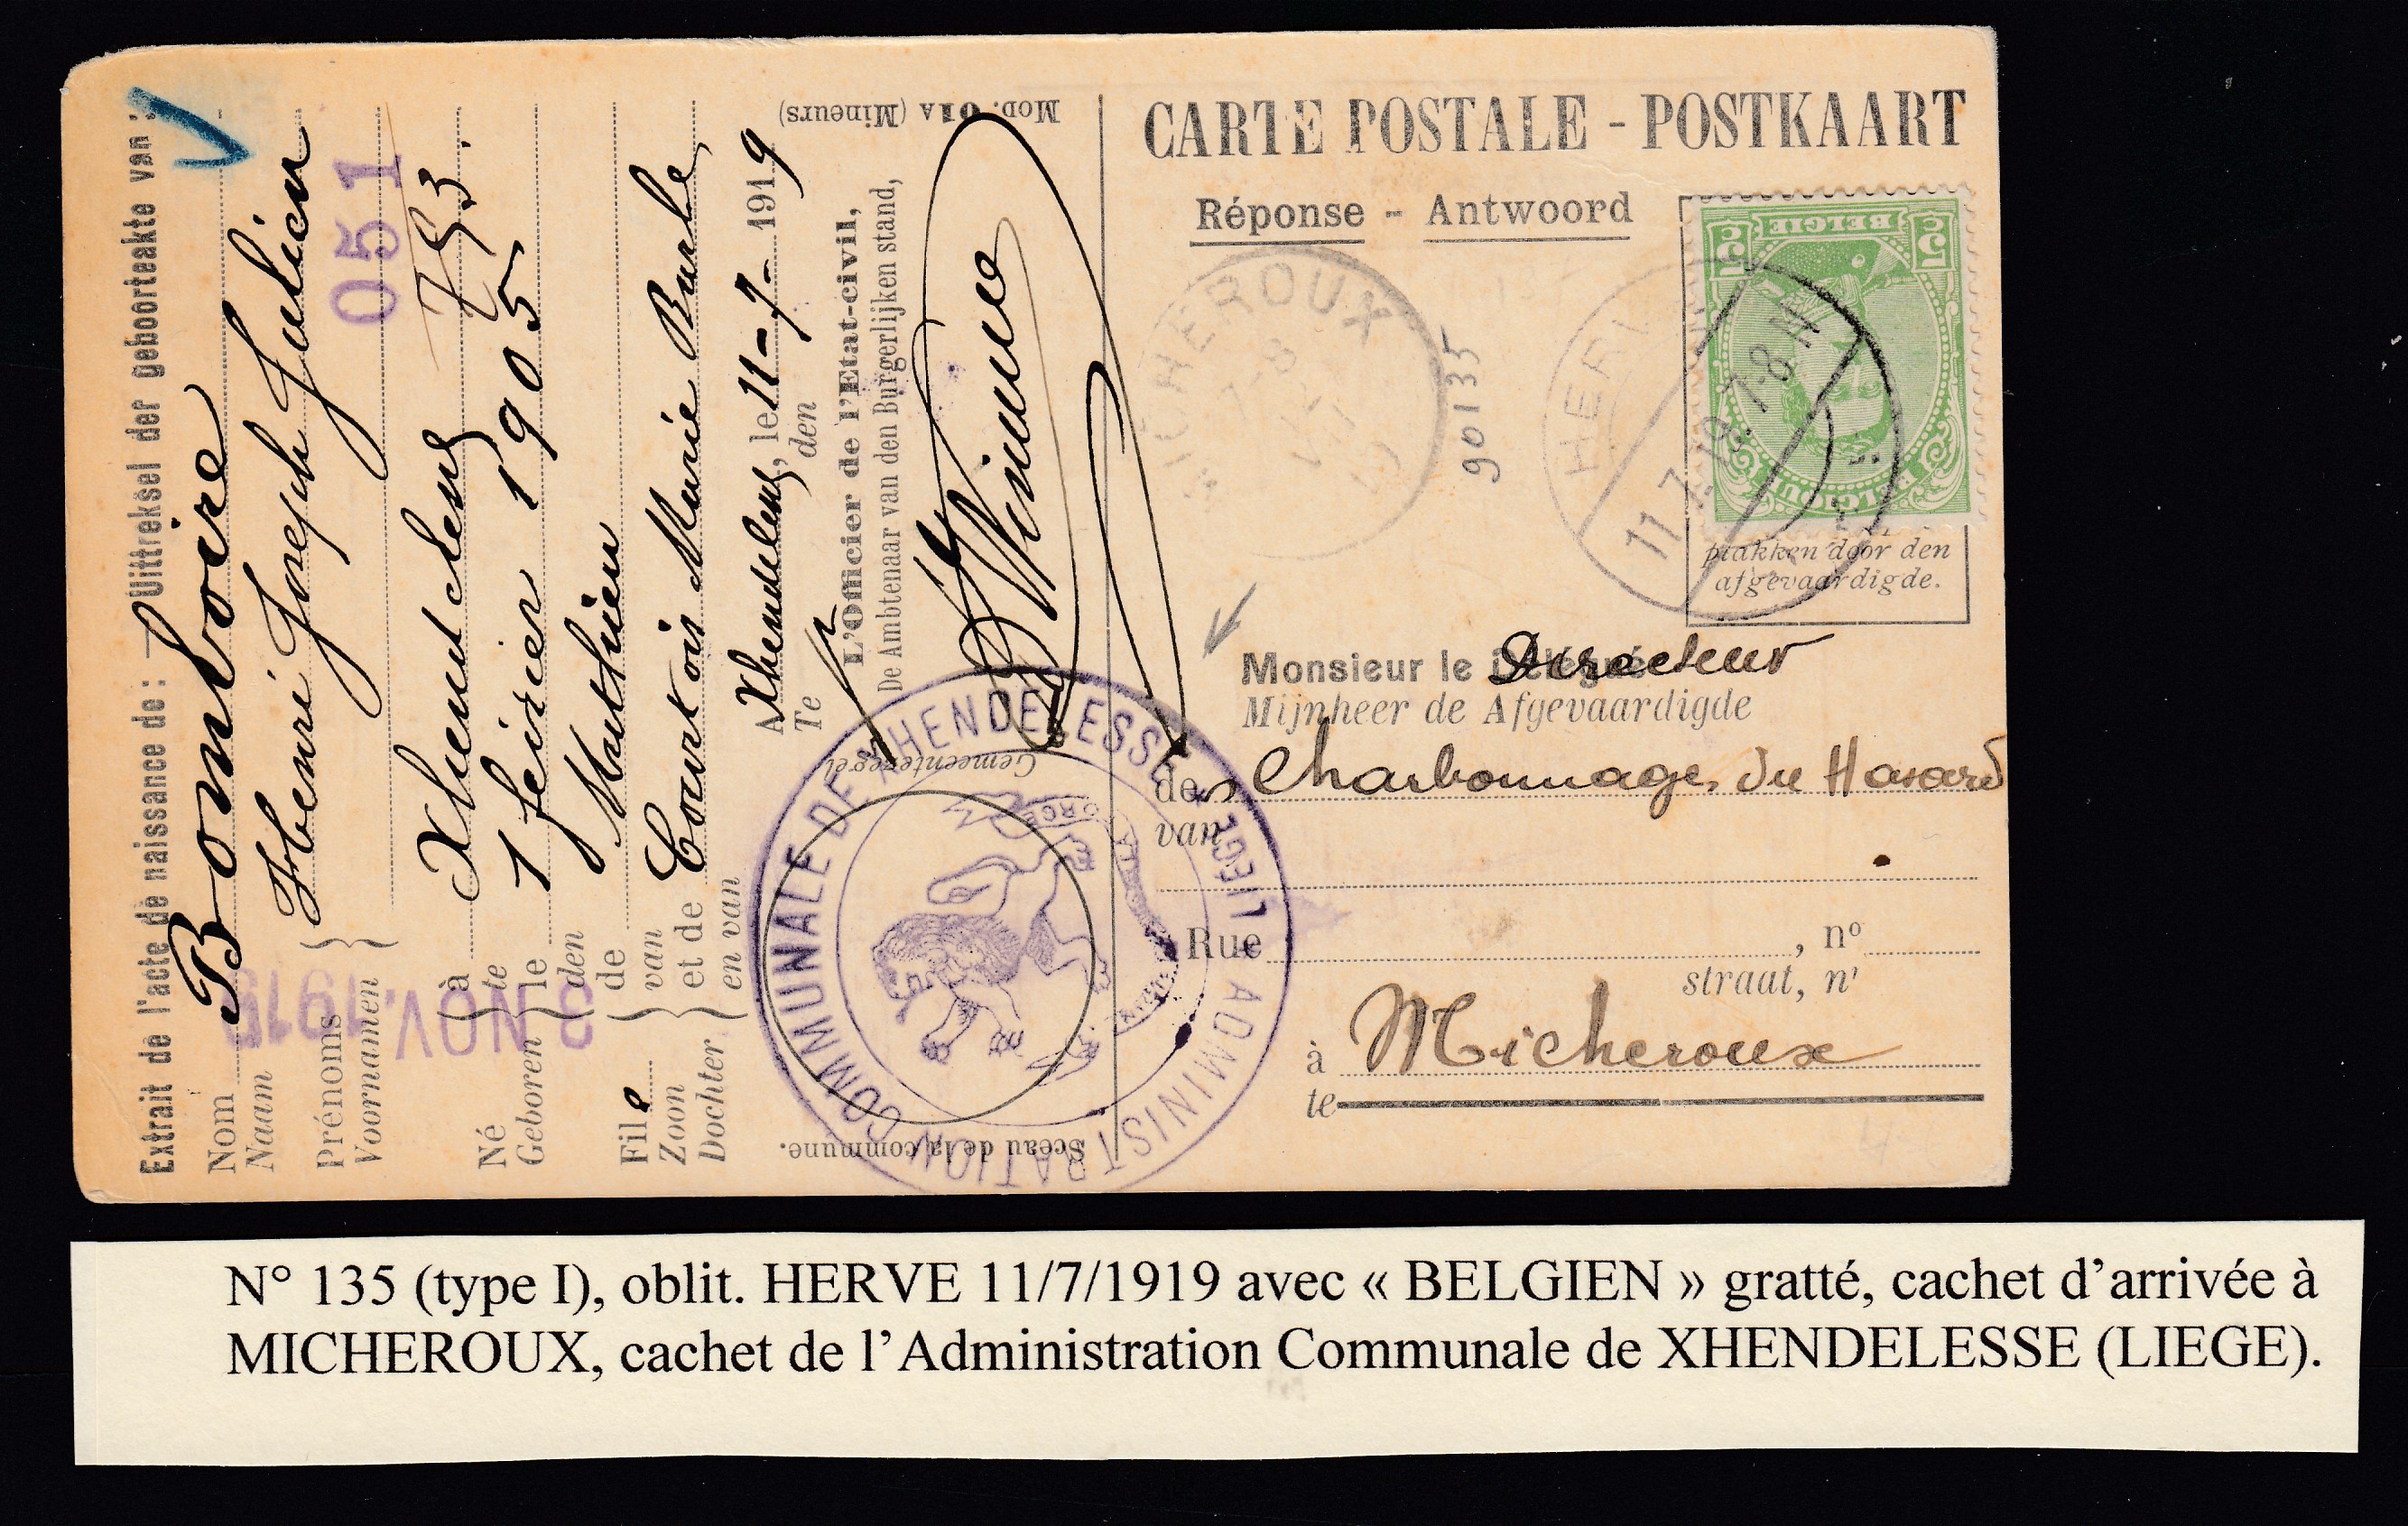 CARTE POSTALE - POSTKAART
Réponse - Antwoord
5c BELGIË 5c
BELGIQUE
plakken door den
afgevaardigde.
MICHEROUX
7-8
HERV
11.7.19. 7-8 N
90135
Monsieur le Directeur
Mijnheer de Afgevaardigde
de Charbonnages du Hasard
van
Rue , n°
straat, nr
à Micheroux
te
Extrait de l'acte de naissance de : — Uittreksel der geboorteakte van :
Nom Bonvoire
Naam
Prénoms Henri Joseph Julien
Voornamen
051
793.
Né à
Geboren te
le 1 1905
den
Fils de Mathieu
Zoon van
Dochter
et de Courtois Marie Barbe
en van
3 NOV. 1919
A Xhendelesse, le 11-7- 1919
Te den
L'Officier de l'Etat-civil,
De Ambtenaar van den Burgerlijken stand,
MOD. 01A (Mineurs)
Gemeentezegel
Sceau de la commune.
ADMINISTRATION COMMUNALE DE XHENDELESSE LIEGE
N° 135 (type I), oblit. HERVE 11/7/1919 avec « BELGIEN » gratté, cachet d'arrivée à
MICHEROUX, cachet de l'Administration Communale de XHENDELESSE (LIEGE).